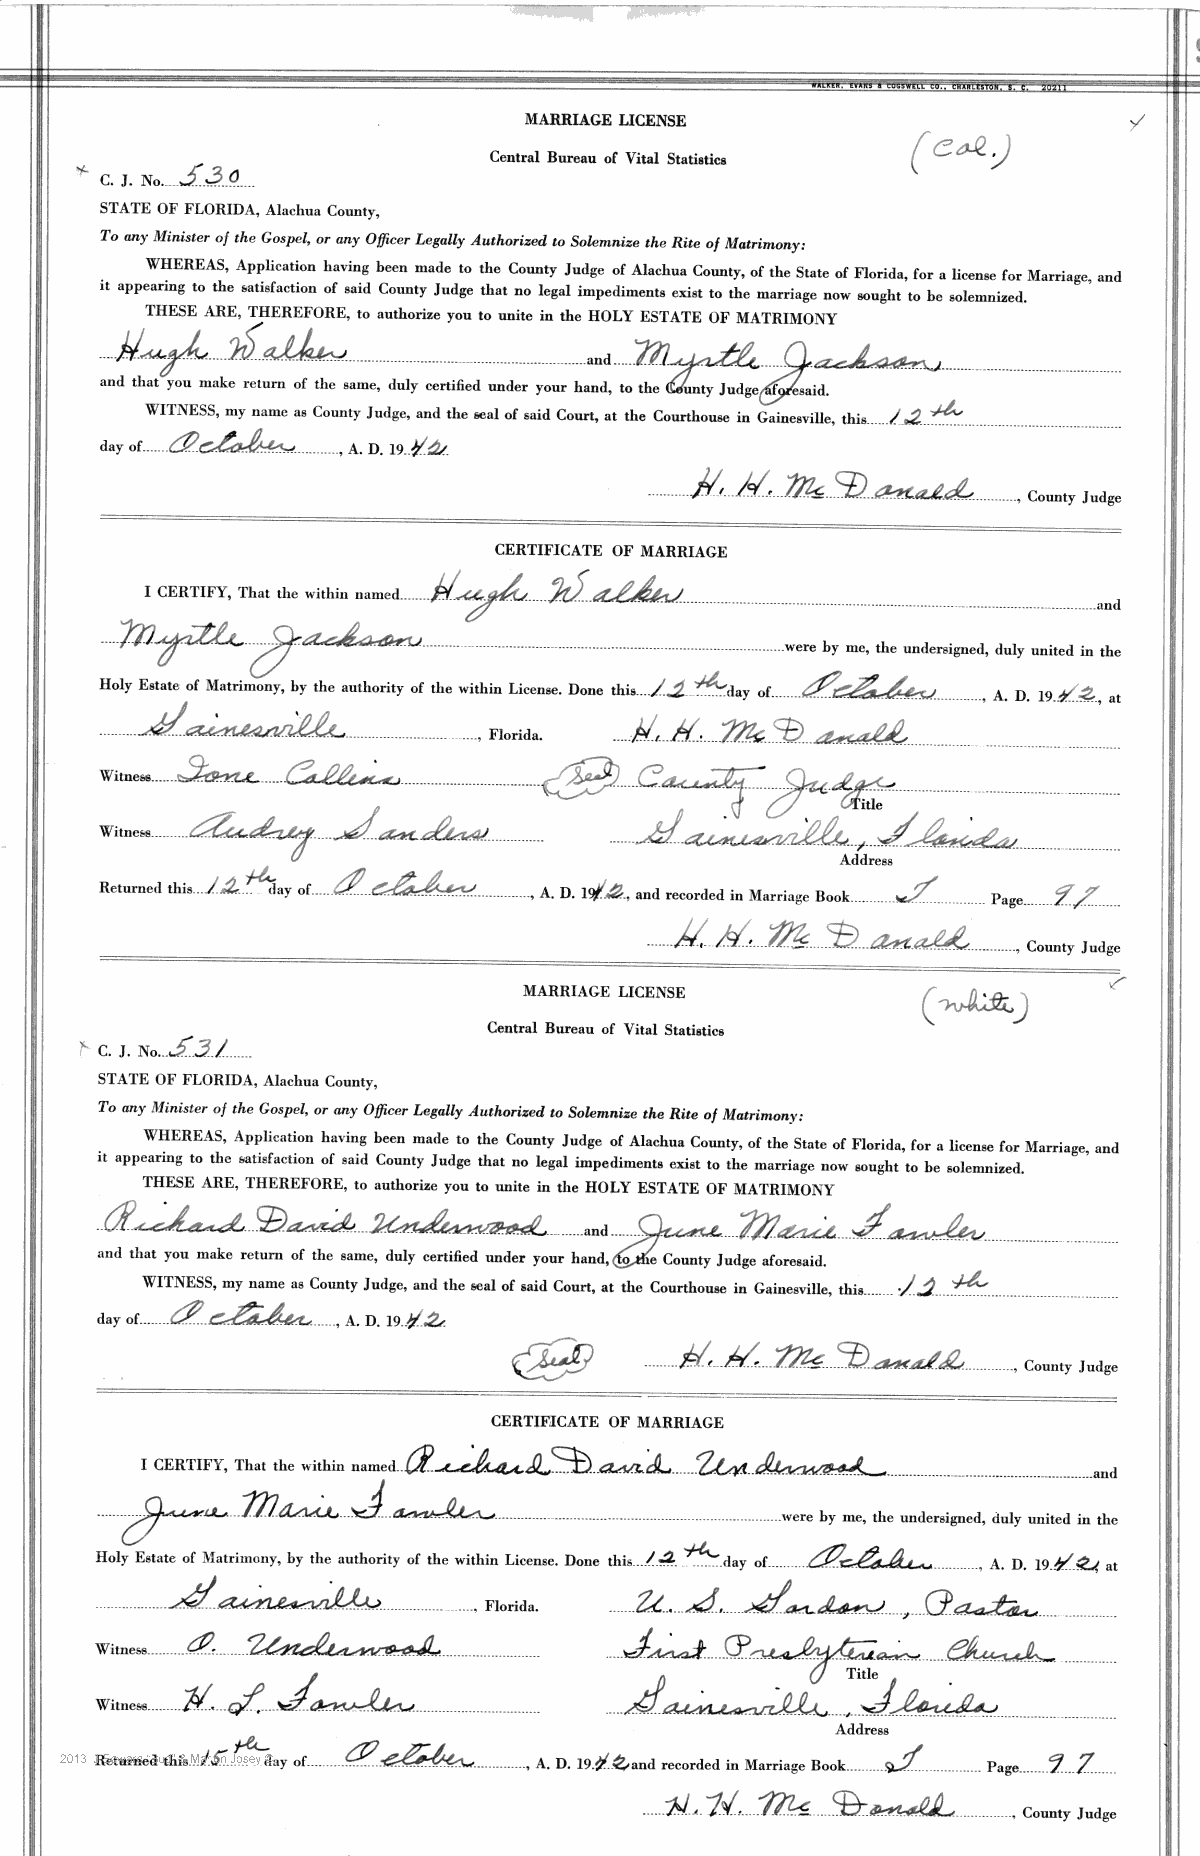 WALKER, EVANS & COGSWELL CO., CHARLESTON, S. C. 20211
MARRIAGE LICENSE
(Col.)
Central Bureau of Vital Statistics
C. J. No. 530
STATE OF FLORIDA, Alachua County,
To any Minister of the Gospel, or any Officer Legally Authorized to Solemnize the Rite of Matrimony:
WHEREAS, Application having been made to the County Judge of Alachua County, of the State of Florida, for a license for Marriage, and
it appearing to the satisfaction of said County Judge that no legal impediments exist to the marriage now sought to be solemnized.
THESE ARE, THEREFORE, to authorize you to unite in the HOLY ESTATE OF MATRIMONY
Hugh Walker and Myrtle Jackson
and that you make return of the same, duly certified under your hand, to the County Judge aforesaid.
WITNESS, my name as County Judge, and the seal of said Court, at the Courthouse in Gainesville, this 12th
day of October, A. D. 1942
H. H. McDonald, County Judge
CERTIFICATE OF MARRIAGE
I CERTIFY, That the within named Hugh Walker and
Myrtle Jackson were by me, the undersigned, duly united in the
Holy Estate of Matrimony, by the authority of the within License. Done this 12th day of October, A. D. 1942, at
Gainesville, Florida. H. H. McDonald
Witness Ione Collins (Seal) County Judge
Title
Witness Audrey Sanders Gainesville, Florida
Address
Returned this 12th day of October, A. D. 1942, and recorded in Marriage Book J Page 97
H. H. McDonald, County Judge
MARRIAGE LICENSE
(White)
Central Bureau of Vital Statistics
C. J. No. 531
STATE OF FLORIDA, Alachua County,
To any Minister of the Gospel, or any Officer Legally Authorized to Solemnize the Rite of Matrimony:
WHEREAS, Application having been made to the County Judge of Alachua County, of the State of Florida, for a license for Marriage, and
it appearing to the satisfaction of said County Judge that no legal impediments exist to the marriage now sought to be solemnized.
THESE ARE, THEREFORE, to authorize you to unite in the HOLY ESTATE OF MATRIMONY
Richard David Underwood and June Marie Fowler
and that you make return of the same, duly certified under your hand, to the County Judge aforesaid.
WITNESS, my name as County Judge, and the seal of said Court, at the Courthouse in Gainesville, this 12th
day of October, A. D. 1942
(Seal) H. H. McDonald, County Judge
CERTIFICATE OF MARRIAGE
I CERTIFY, That the within named Richard David Underwood and
June Marie Fowler were by me, the undersigned, duly united in the
Holy Estate of Matrimony, by the authority of the within License. Done this 12th day of October, A. D. 1942, at
Gainesville, Florida. U. S. Gordon, Pastor
Witness O. Underwood First Presbyterian Church
Title
Witness H. L. Fowler Gainesville, Florida
Address
Returned this 15th day of October, A. D. 1942 and recorded in Marriage Book J Page 97
H. H. McDonald, County Judge